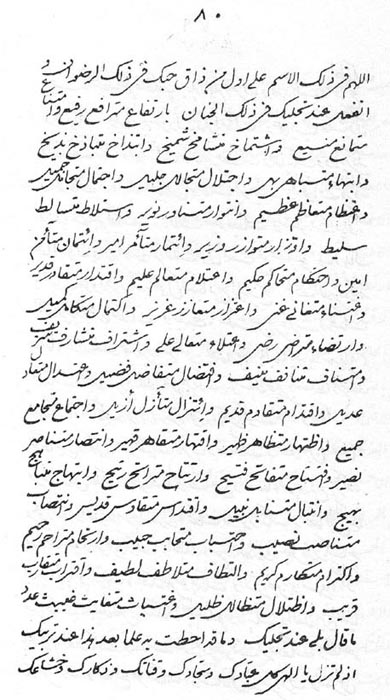 ٨٠
اللهم فی ذلک الاسم علی اول من ذاق حبک فی ذلک الرضوان و
انقمص عند تجلیک فی ذلک الجنان بارتفاع مترافع رفیع وامتناع
متمانع منیع و اشتماخ متشامخ شمیخ و ابتذاخ متباذخ بذیخ
و ابتهاء متباهی بهی و اجتلال متجالل جلیل و اجتمال متجامل جمیل
و اعتظام متعاظم عظیم و انتوار متناور نویر و استلاط متسالط
سلیط و اوتزار متوازر وزیر و ائتمار متآمر امیر و ائتمان متآمن
امین و احتکام متحاکم حکیم و اعتلام متعالم علیم و اقتدار متقادر قدیر
و اغتناء متغانی غنی و اعتزاز متعازز عزیز و اکتمال متکامل کمیل
و ارتضاء متراضی رضی و اعتلاء متعالی علی و اشتراف متشارف شریف
و انتیاف متنایف نییف و افتضال متفاضل فضیل و اعتدال متعادل
عدیل و اقتدام متقادم قدیم و ائتزال متآزل ازیل و اجتماع متجامع
جمیع و اظتهار متظاهر ظهیر و اقتهار متقاهر قهیر و انتصار متناصر
نصیر و افتتاح متفاتح فتیح و ارتتاح متراتح رتیح و ابتهاج متباهج
بهیج و انتبال متنابل نبیل و اقتداس متقادس قدیس و انتصاب
متناصب نصیب و احتباب متحابب حبیب و ارتحام متراحم رحیم
و اکترام متکارم کریم و التطاف متلاطف لطیف و اقتراب متقارب
قریب و اظتلال متظالل ظلیل و اغتیاث متغایث غییث عدد
ما قال بلی عند تجلیک و ما قد احطت به علما بعد هذا عند تربیک
اذ لم تزل یا الهی کل عبادک و سجادک و قنائک و ذکارک و خشاعک